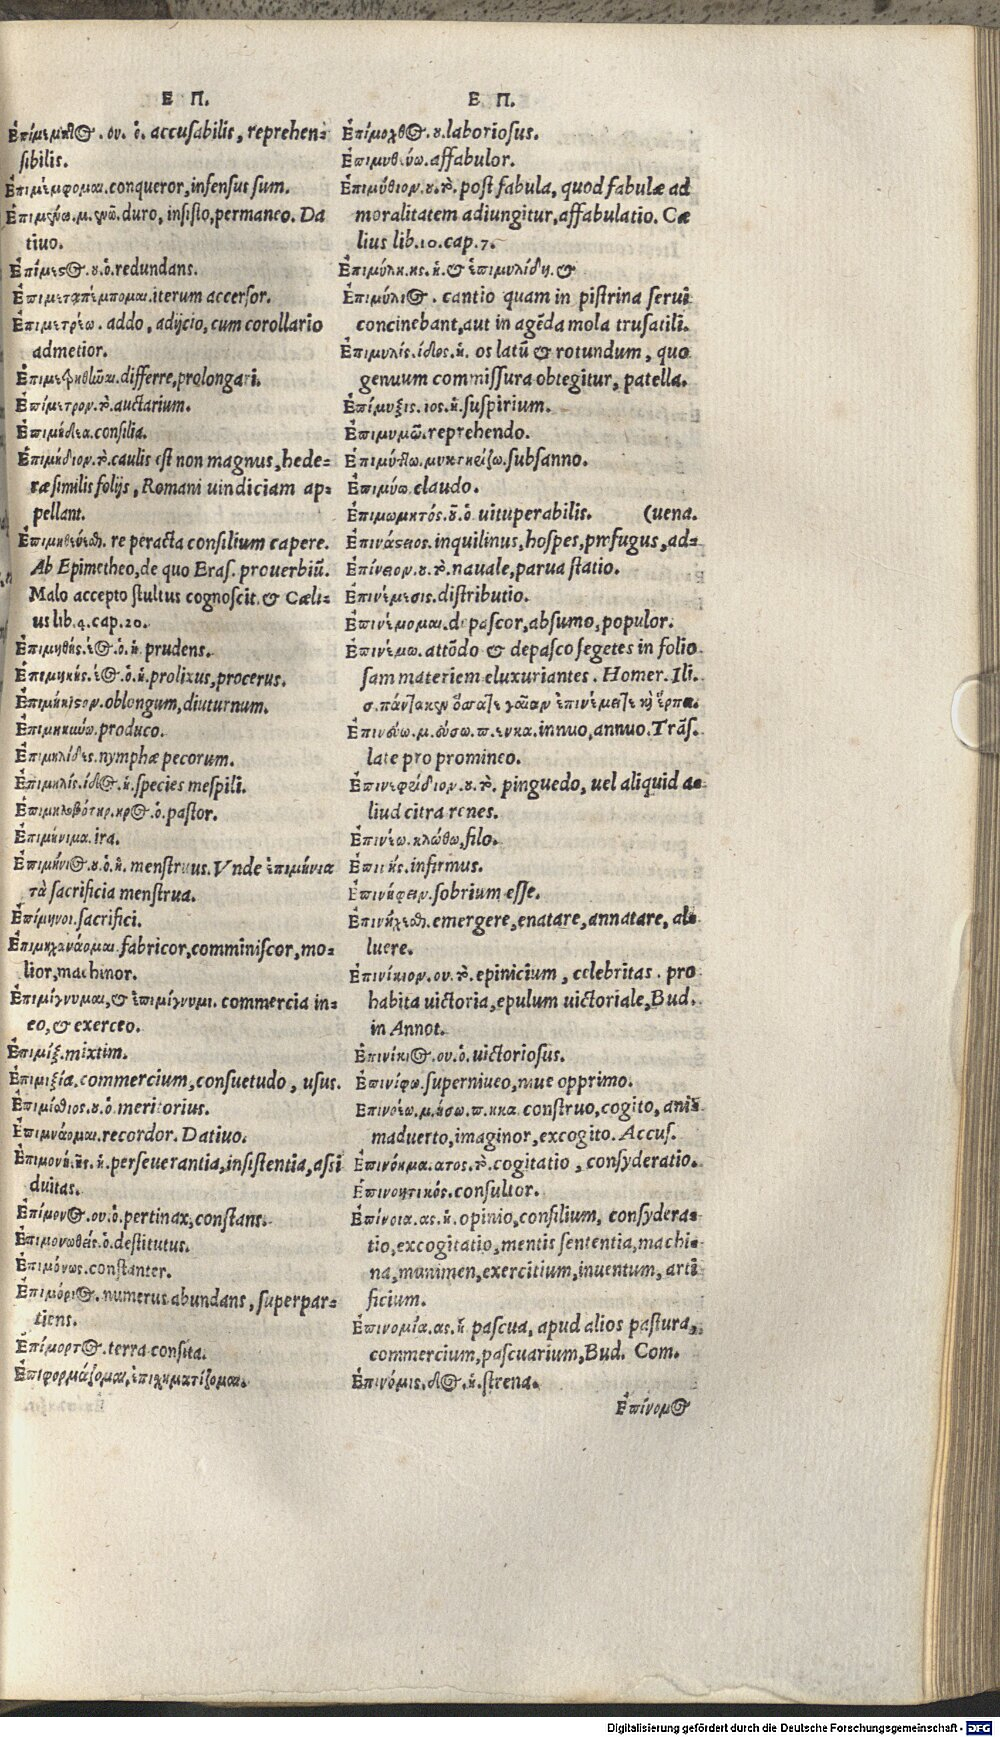 Ε Π.
Ἐπίμεμπτος. ου. ὁ. accusabilis, reprehen-
sibilis.
Ἐπιμέμφομαι. conqueror, infensus sum.
Ἐπιμένω. μ. ενῶ. duro, insisto, permaneo. Da
tiuo.
Ἐπίμεστος. ȣ. ὁ. redundans.
Ἐπιμεταπέμπομαι. iterum accersor.
Ἐπιμετρέω. addo, adijcio, cum corollario
admetior.
differre, prolongari.
Ἐπίμετρον. τὸ. auctarium.
Ἐπιμήδεα. consilia.
Ἐπιμήδιον. τὸ. caulis est non magnus, hede-
ræ similis folijs, Romani uindiciam ap-
pellant.
Ἐπιμηθεύεσθαι. re peracta consilium capere.
Ab Epimetheo, de quo Eras. prouerbiū.
Malo accepto stultus cognoscit. & Cæli-
us lib. 4. cap. 20.
Ἐπιμηθής. έος. ὁ. ἡ. prudens.
Ἐπιμήκης. έος. ὁ. ἡ. prolixus, procerus.
Ἐπιμήκιστον. oblongum, diuturnum.
Ἐπιμηκύνω. produco.
Ἐπιμηλίδες. nymphæ pecorum.
Ἐπιμηλίς. ίδος. ἡ. species mespili.
Ἐπιμηλοβότηρ. ηρος. ὁ. pastor.
Ἐπιμήνιμα. ira.
Ἐπιμήνιος. ȣ. ὁ. ἡ. menstruus. Vnde ἐπιμήνια
τὰ sacrificia menstrua.
Ἐπίμηνοι. sacrifici.
Ἐπιμηχανάομαι. fabricor, comminiscor, mo-
lior, machinor.
Ἐπιμίγνυμαι, & ἐπιμίγνυμι. commercia in-
eo, & exerceo.
Ἐπιμίξ. mixtim.
Ἐπιμιξία. commercium, consuetudo, usus.
Ἐπιμίσθιος. ȣ. ὁ. meritorius.
Ἐπιμνάομαι. recordor. Datiuo.
Ἐπιμονή. ῆς. ἡ. perseuerantia, insistentia, assi
duitas.
Ἐπίμονος. ου. ὁ. pertinax, constans.
Ἐπιμονωθείς. ὁ. destitutus.
Ἐπιμόνως. constanter.
Ἐπιμόριος. numerus abundans, superpar-
tiens.
Ἐπίμορτος. terra consita.
Ἐπιφορμάζομαι, ἐπιχηματίζομαι.
Ε Π.
Ἐπίμοχθος. ȣ. laboriosus.
Ἐπιμυθεύω. affabulor.
Ἐπιμύθιον. ȣ. τὸ. post fabula, quod fabulæ ad
moralitatem adiungitur, affabulatio. Cæ
lius lib. 10. cap. 7.
Ἐπιμύλη. ης. ἡ. & ἐπιμυλίδη. &
Ἐπιμύλιος. cantio quam in pistrina serui
concinebant, aut in agēda mola trusatili.
Ἐπιμυλίς. ίδος. ἡ. os latū & rotundum, quo
genuum commissura obtegitur, patella.
Ἐπίμυξις. ιος. ἡ. suspirium.
Ἐπιμυμῶ. reprehendo.
Ἐπιμύττω. μυκτηρίζω. subsanno.
Ἐπιμύω. claudo.
Ἐπιμωμητός. ȣ. ὁ uituperabilis. (uena.
Ἐπινάστιος. inquilinus, hospes, profugus, ad-
Ἐπίνειον. ȣ. τὸ. nauale, parua statio.
Ἐπινέμεσις. distributio.
Ἐπινέμομαι. depascor, absumo, populor.
Ἐπινέμω. attōdo & depasco segetes in folio
sam materiem eluxuriantes. Homer. Ili.
ἐπινέμει
Ἐπινεύω. μ. εύσω. π. ευκα. innuo, annuo. Trāſ.
late pro promineo.
Ἐπινεφρίδιον. ȣ. τὸ. pinguedo, uel aliquid a-
liud citra renes.
Ἐπινέω. κλώθω, filo.
infirmus.
Ἐπινήφειν. sobrium esse.
Ἐπινήχεσθαι. emergere, enatare, annatare, al-
luere.
Ἐπινίκιον. ου. τὸ. epinicium, celebritas. pro
habita uictoria, epulum uictoriale, Bud.
in Annot.
Ἐπινίκιος. ου. ὁ. uictoriosus.
Ἐπινίφω. superniueo, niue opprimo.
Ἐπινοέω. μ. ήσω. π. ηκα. construo, cogito, ani-
maduerto, imaginor, excogito. Accus.
Ἐπινόημα. ατος. τὸ. cogitatio, consyderatio.
Ἐπινοητικός. consultor.
Ἐπίνοια. ας. ἡ. opinio, consilium, consydera-
tio, excogitatio, mentis sententia, machi-
na, munimen, exercitium, inuentum, arti
ficium.
Ἐπινομία. ας. ἡ. pascua, apud alios pastura,
commercium, pascuarium, Bud. Com.
Ἐπινόμις. δος. ἡ. strena.
Ἐπίνομος
Digitalisierung gefördert durch die Deutsche Forschungsgemeinschaft - DFG